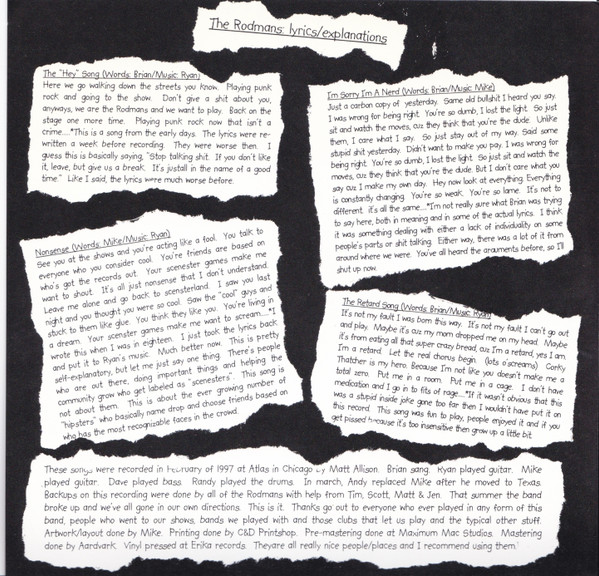 The Rodmans: lyrics/explanations
The "Hey" Song (Words: Brian/Music: Ryan)
Here we go walking down the streets you know. Playing punk
rock and going to the show. Don't give a shit about you,
anyways, we are the Rodmans and we want to play. Back on the
stage one more time. Playing punk rock now that isn't a
crime....*This is a song from the early days. The lyrics were re-
written a week before recording. They were worse then. I
guess this is basically saying, "Stop talking shit. If you don't like
it, leave, but give us a break. It's justall in the name of a good
time." Like I said, the lyrics were much worse before.
I'm Sorry I'm A Nerd (Words: Brian/Music: Mike)
Just a carbon copy of yesterday. Same old bullshit I heard you say.
I was wrong for being right. You're so dumb, I lost the light. So just
sit and watch the moves, cuz they think that you're the dude. Unlike
them, I care what I say. So just stay out of my way. Said some
stupid shit yesterday. Didn't want to make you pay. I was wrong for
being right. You're so dumb, I lost the light. So just sit and watch the
moves, cuz they think that you're the dude. But I don't care what you
say cuz I make my own day. Hey now look at everything. Everything
is constantly changing. You're so weak. You're so lame. It's not to
different. it's all the same....*I'm not really sure what Brian was trying
to say here, both in meaning and in some of the actual lyrics. I think
it was something dealing with either a lack of individuality on some
people's parts or shit talking. Either way, there was a lot of it from
around where we were. You've all heard the arguments before, so I'll
shut up now.
Nonsense (Words: Mike/Music: Ryan)
See you at the shows and you're acting like a fool. You talk to
everyone who you consider cool. You're friends are based on
who's got the records out. Your scenester games make me
want to shout. It's all just nonsense that I don't understand.
Leave me alone and go back to scensterland. I saw you last
night and you thought you were so cool. Saw the "cool" guys and
stuck to them like glue. You think they like you. You're living in
a dream. Your scenester games make me want to scream....*I
wrote this when I was in eighteen. I just took the lyrics back
and put it to Ryan's music. Much better now. This is pretty
self-explanatory, but let me just say one thing. There's people
who are out there, doing important things and helping the
community grow who get labeled as "scenesters". This song is
not about them. This is about the ever growing number of
"hipsters" who basically name drop and choose friends based on
who has the most recognizable faces in the crowd.
The Retard Song (Words: Brian/Music: Ryan)
It's not my fault I was born this way. It's not my fault I can't go out
and play. Maybe it's cuz my mom dropped me on my head. Maybe
it's from eating all that super crazy bread, cuz I'm a retard, yes I am.
I'm a retard. Let the real chorus begin. (lots o'screams) Corky
Thatcher is my hero. Because I'm not like you doesn't make me a
total zero. Put me in a room. Put me in a cage. I don't have
medication and I go in to fits of rage....*If it wasn't obvious that this
was a stupid inside joke gone too far then I wouldn't have put it on
this record. This song was fun to play, people enjoyed it and if you
get pissed because it's too insensitive then grow up a little bit.
These songs were recorded in February of 1997 at Atlas in Chicago by Matt Allison. Brian sang. Ryan played guitar. Mike
played guitar. Dave played bass. Randy played the drums. In march, Andy replaced Mike after he moved to Texas.
Backups on this recording were done by all of the Rodmans with help from Tim, Scott, Matt & Jen. That summer the band
broke up and we've all gone in our own directions. This is it. Thanks go out to everyone who ever played in any form of this
band, people who went to our shows, bands we played with and those clubs that let us play and the typical other stuff.
Artwork/layout done by Mike. Printing done by C&D Printshop. Pre-mastering done at Maximum Mac Studios. Mastering
done by Aardvark. Vinyl pressed at Erika records. Theyare all really nice people/places and I recommend using them.